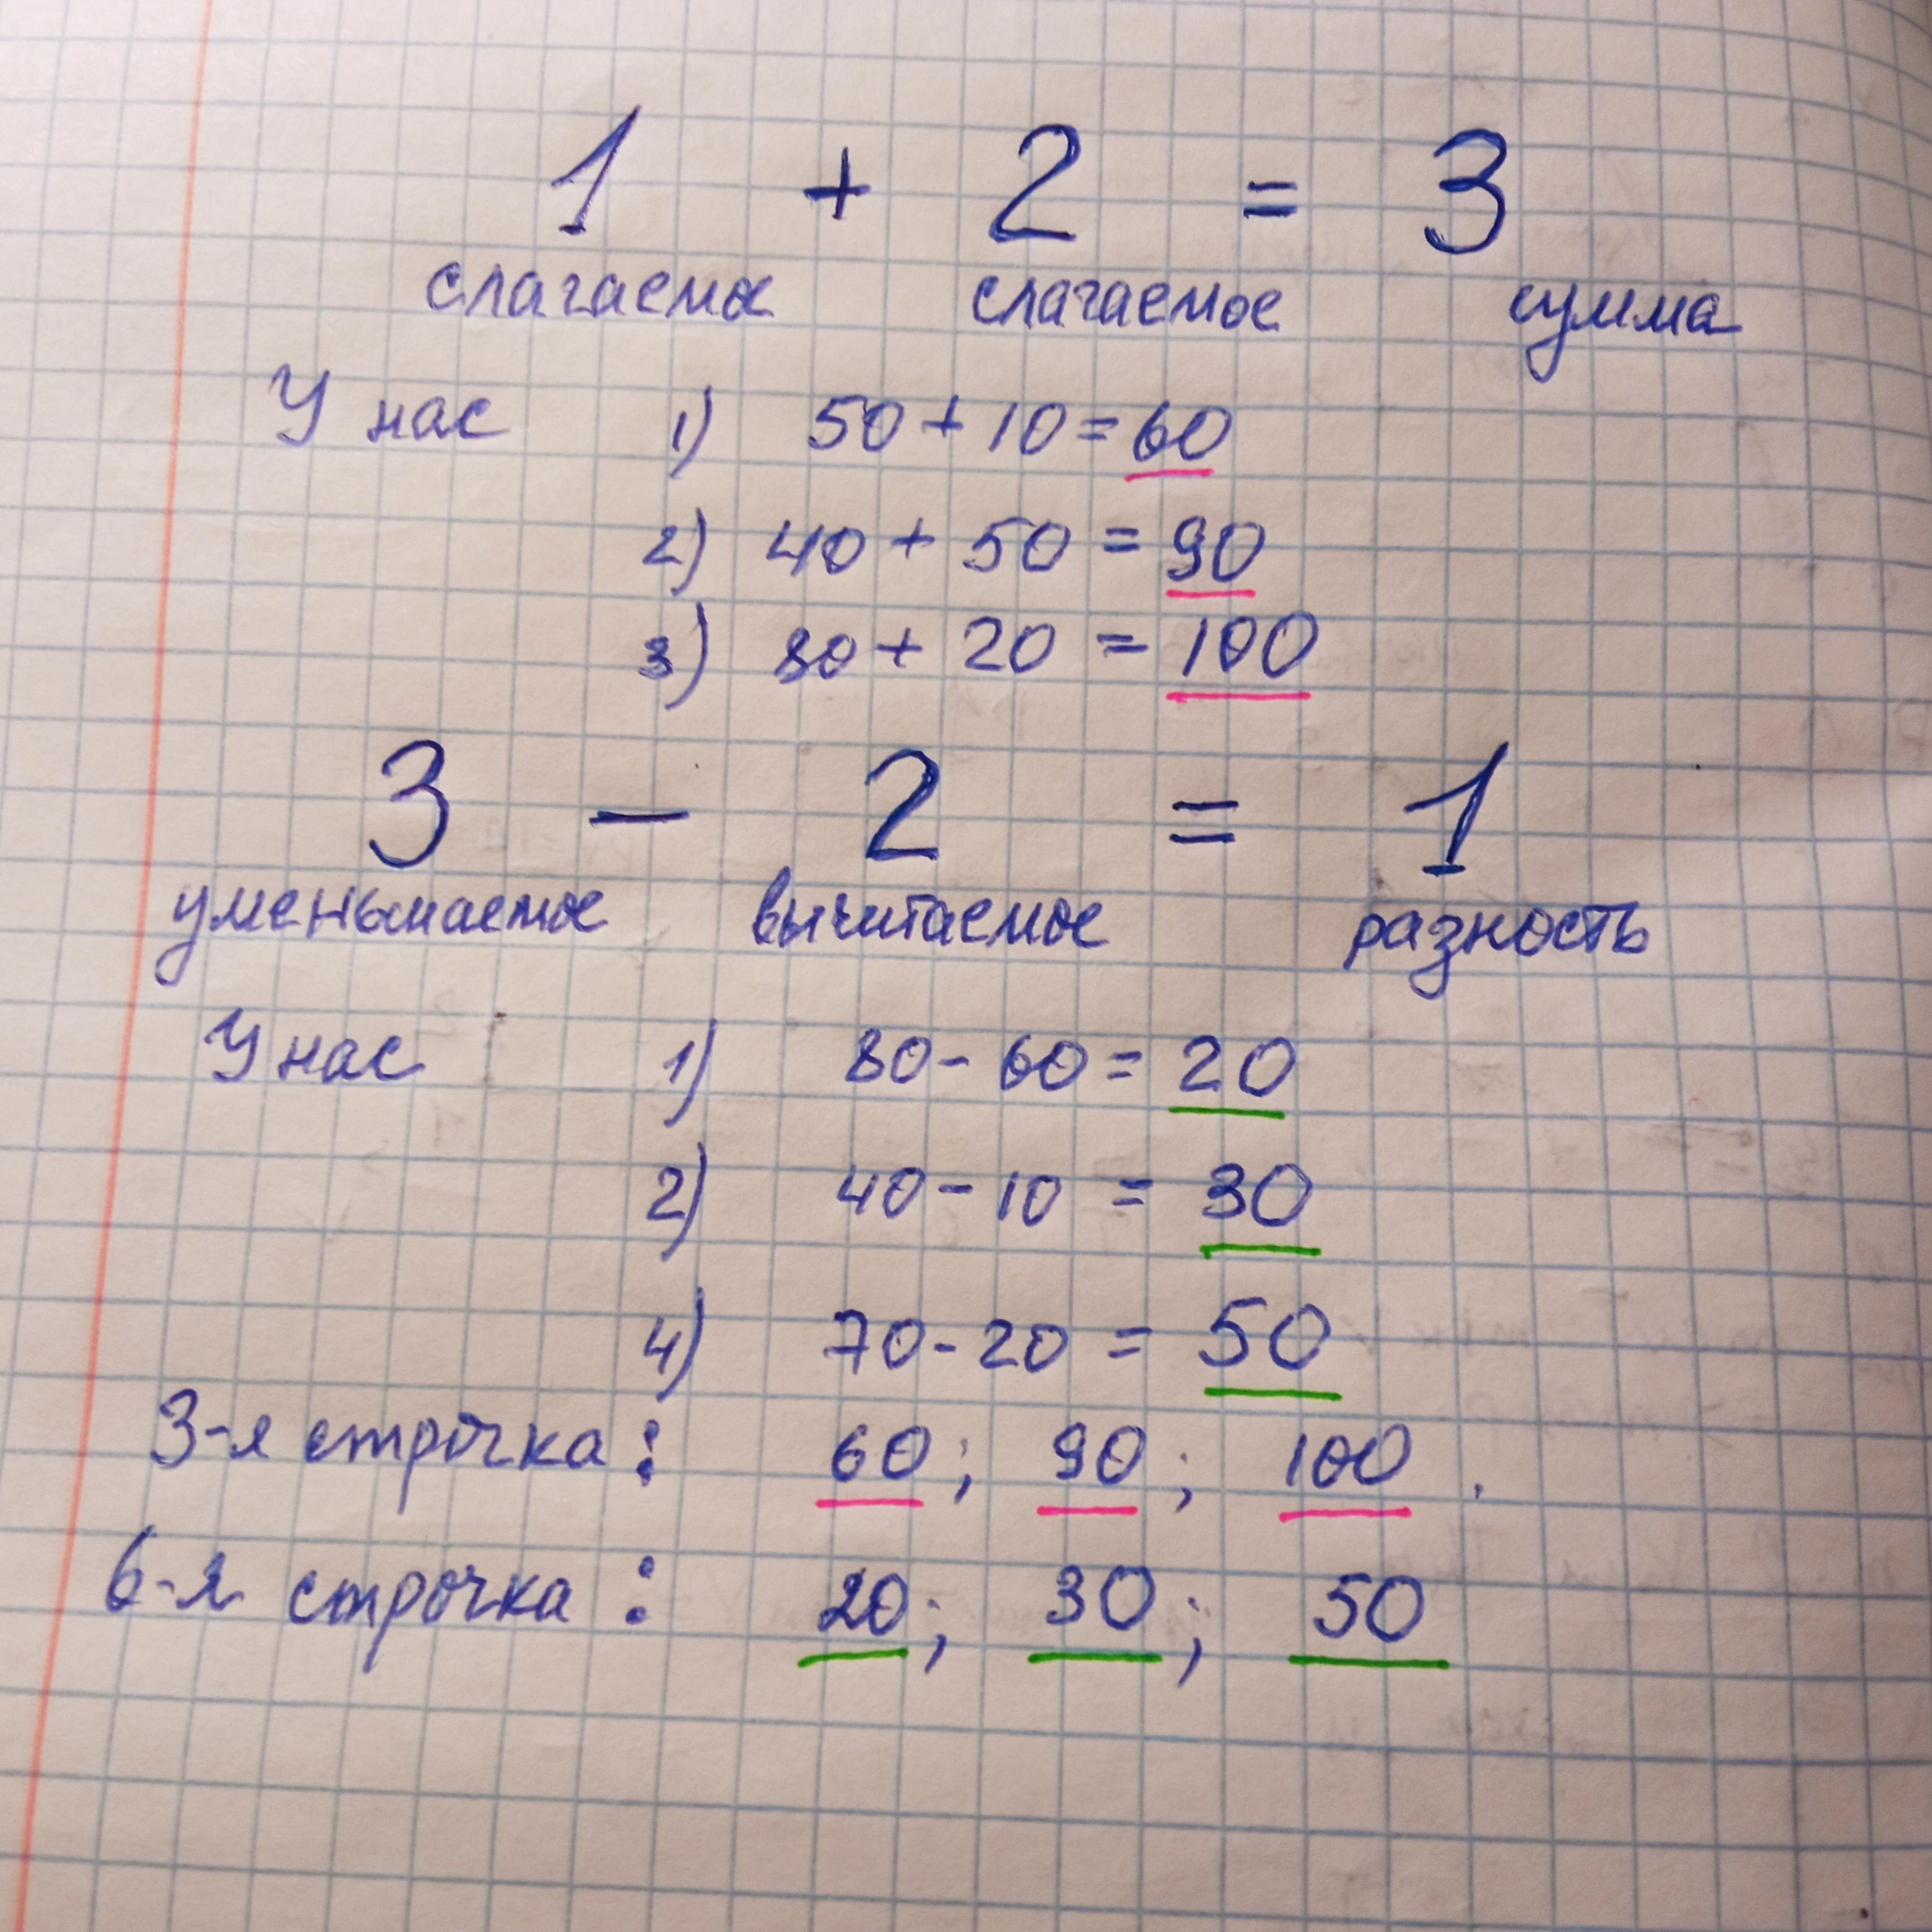 1 + 2 = 3
слагаемое слагаемое сумма
У нас 1) 50 + 10 = 60
2) 40 + 50 = 90
3) 80 + 20 = 100
3 — 2 = 1
уменьшаемое вычитаемое разность
У нас 1) 80 - 60 = 20
2) 40 - 10 = 30
4) 70 - 20 = 50
3-я строчка: 60; 90; 100.
6-я строчка: 20; 30; 50